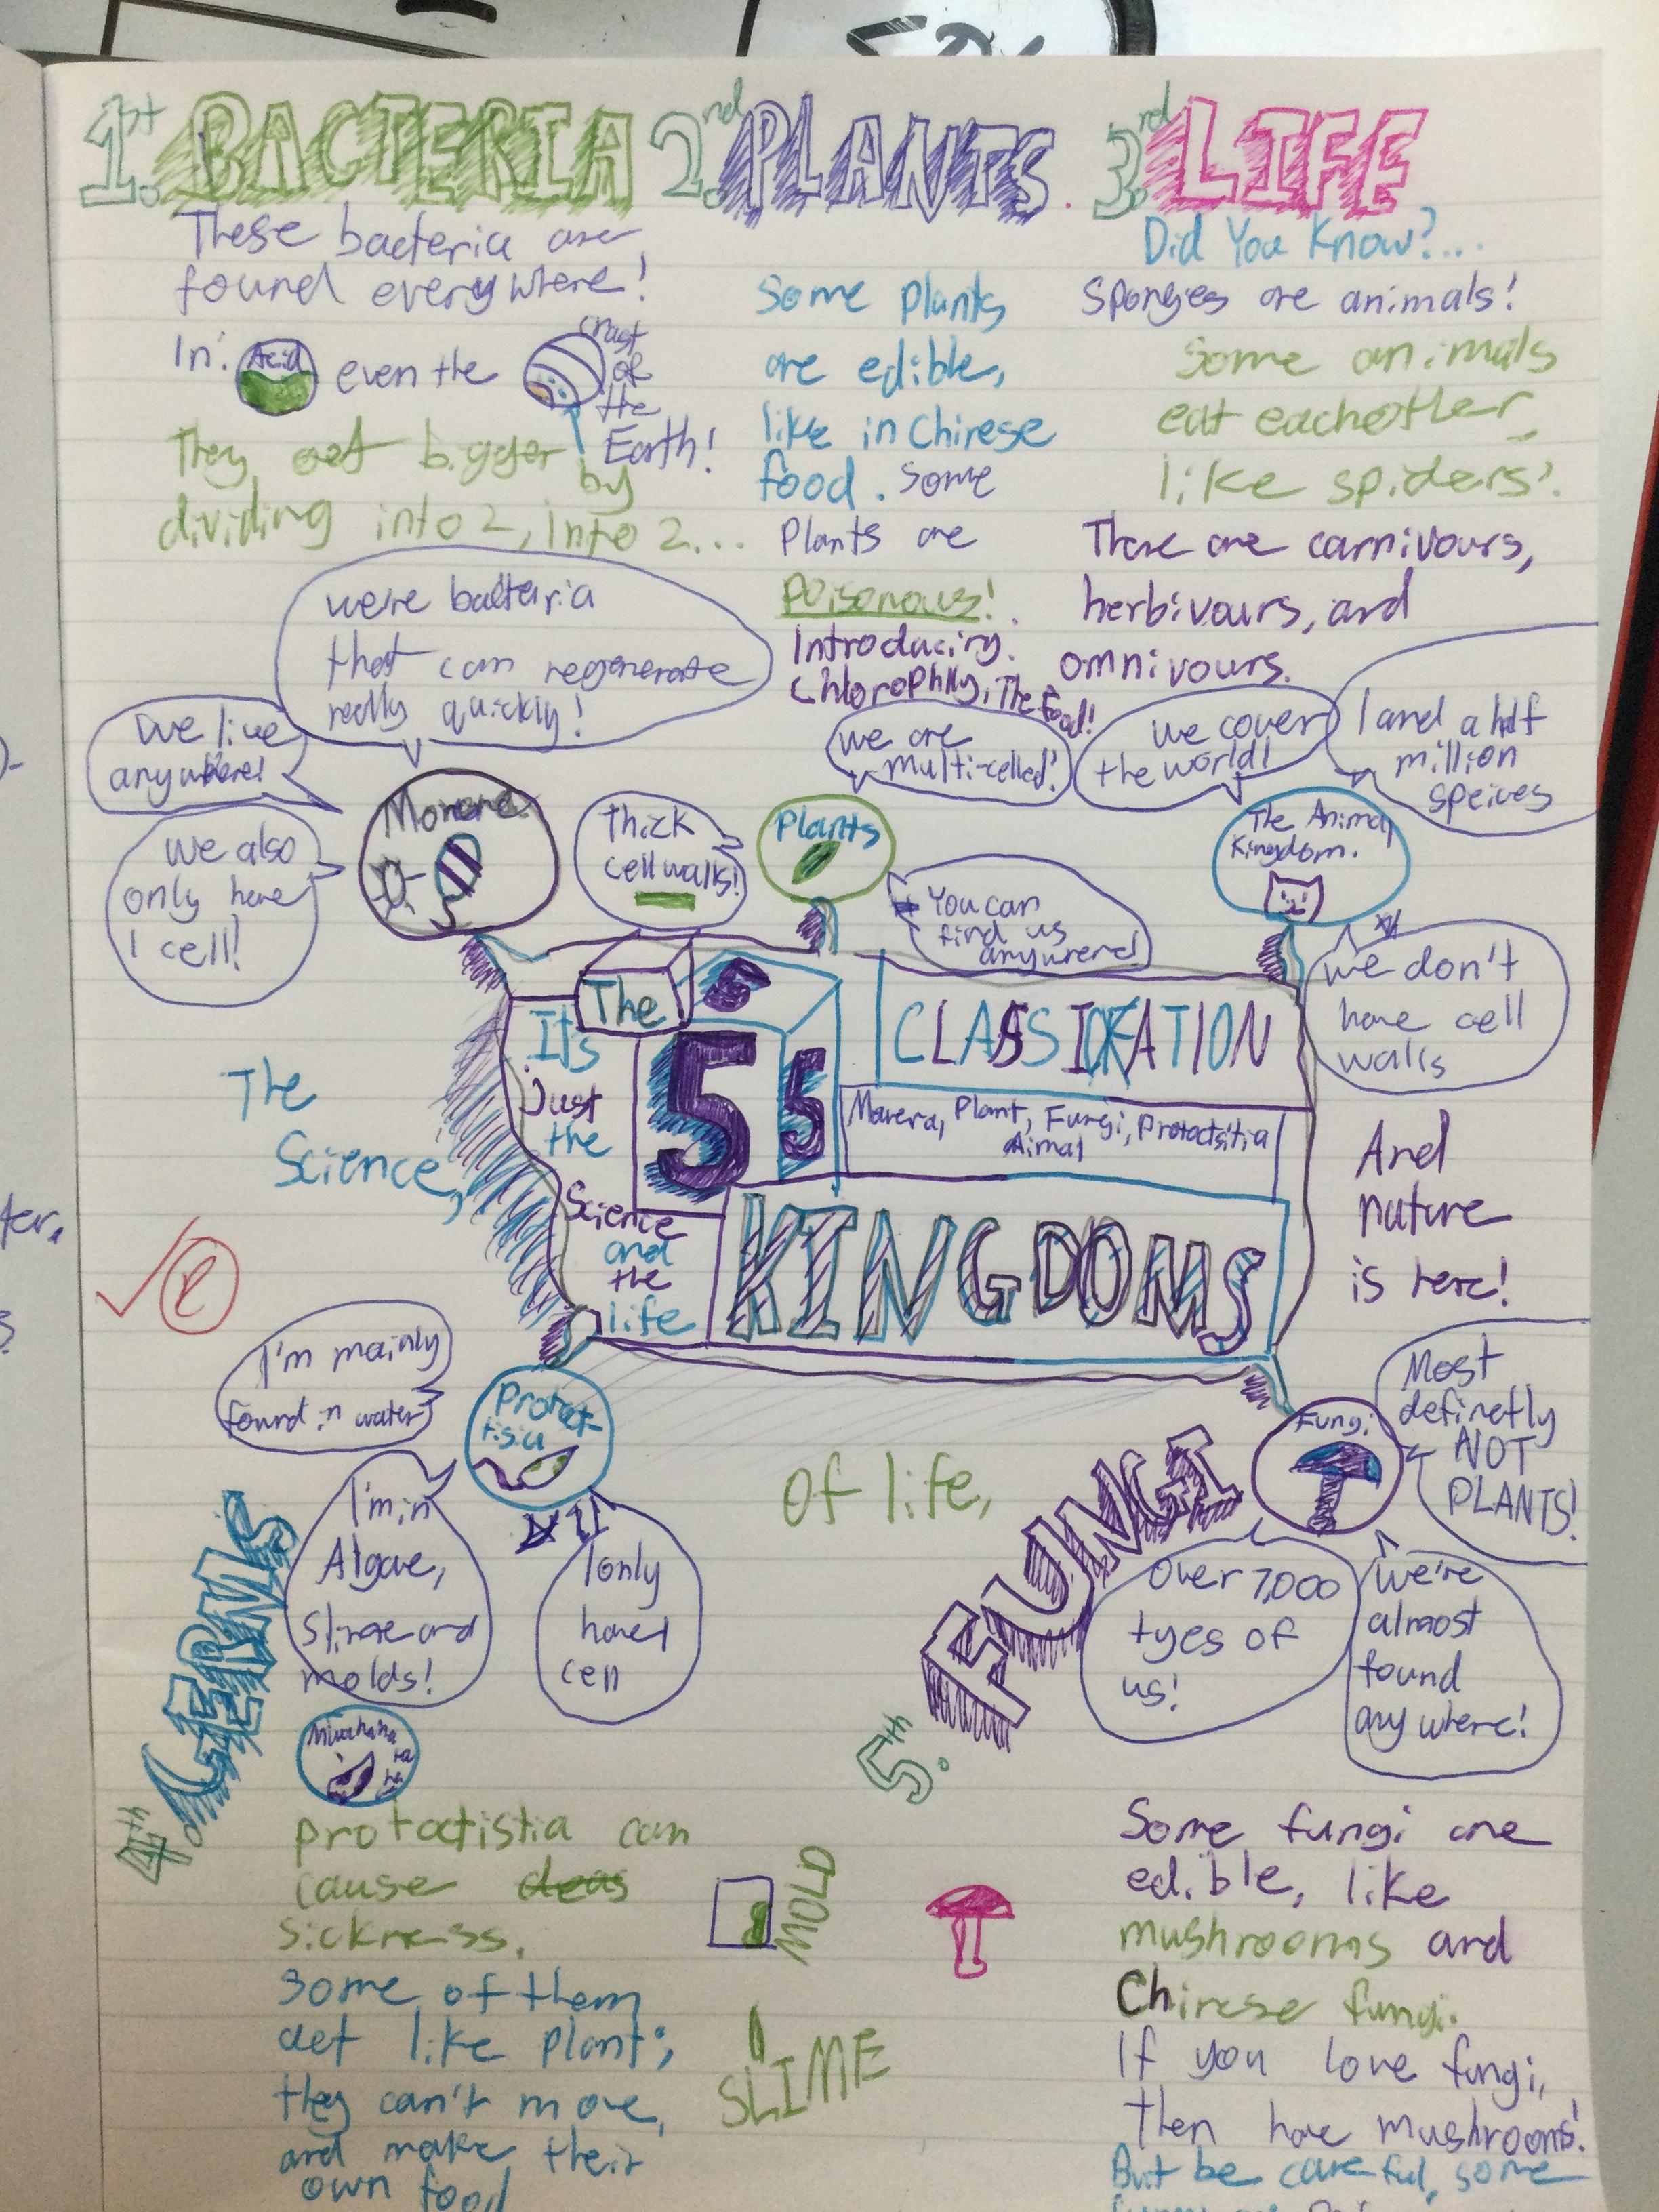 1st. BACTERIA
These bacteria are
found everywhere!
In: Acid even the crust
of
the
Earth!
They get bigger by
dividing into 2, into 2...
2nd. PLANTS.
Some plants
are edible,
like in Chinese
food. Some
Plants are
Poisonous!.
Introducing.
Chlorophlly, The food!
3rd. LIFE
Did You Know?...
Sponges are animals!
Some animals
eat eachother,
like spiders!.
There are carnivours,
herbivours, and
omnivours.
We're bacteria
that can regenerate
really quickly!
We live
anywhere!
We also
only have
1 cell!
Monera
Thick
cell walls!
Plants
We are
multi-celled!
You can
find us
anywhere!
We cover
the world!
1 and a half
million
speices
The Animal
Kingdom.
We don't
have cell
walls
The
Science,
It's
Just
the
Science
and
the
life
The
5
5
5
CLASSIFICATION
Monera, Plant, Fungi, Protoctsitia
Aimal
KINGDOMS
And
nature
is here!
I'm mainly
found in water
Protoct-
tisia
I'm in
Algae,
Slime and
molds!
I only
have 1
cell
of life,
Fungi
Most
definetly
NOT
PLANTS!
Over 7,000
tyes of
us!
We're
almost
found
any where!
4th. GERMS
protoctistia can
cause
sickness.
Some of them
act like plant;
they can't move,
and make their
own food
MOLD
SLIME
5th. FUNGI
Some fungi are
edible, like
mushrooms and
Chinese fungi.
If you love fungi,
then have mushrooms!
But be careful, some